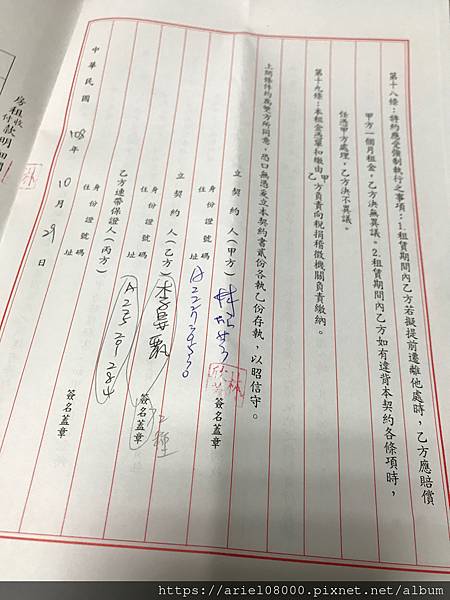 第十八條：特約應受強制執行之事項：1.租賃期間內乙方若擬提前遷離他處時，乙方應賠償
甲方一個月租金，乙方決無異議。2.租賃期間內乙方如有違背本契約各條項時，
任憑甲方處理，乙方決不異議。
第十九條：本租金憑單扣繳由甲乙方負責向稅捐稽徵機關負責繳納。
上開條件均為雙方所同意，恐口無憑爰立本契約書貳份各執乙份存執，以昭信守。
立契約人（甲方）林 簽名蓋章
身份證號碼
住址
立契約人（乙方）李 簽名蓋章
身份證號碼
住址
乙方連帶保證人（丙方） 簽名蓋章
身份證號碼
住址
中華民國 108 年 10 月 29 日
房租收付款明細
https://ariel08000.pixnet.net/album